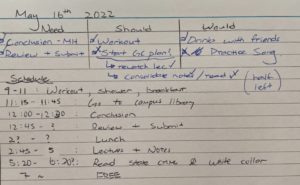 May 16th 2022
Need Should Would
Conclusion - MH Workout Drinks with friends
Review + Submit Start GE plan! Practice Song
↳ rewatch lec ✓
↳ consolidate notes / read ✓ (half left)
Schedule
9 - 11 : Workout, shower, breakfast
11:15 - 11:45 Go to campus library
12:00 - 12:30 : Conclusion
12:45 - ? : Review + Submit
? - ? : Lunch
2:45 - 5 : Lectures + Notes
5:20 - 6:20?: Read state crime & white collar
7 ~ FREE